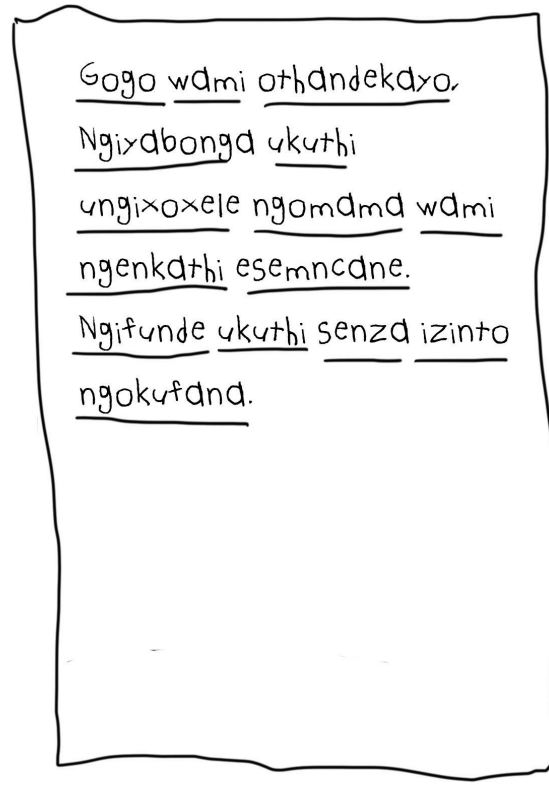 Gogo wami othandekayo,
Ngiyabonga ukuthi
ungixoxele ngomama wami
ngenkathi esemncane.
Ngifunde ukuthi senza izinto
ngokufana.